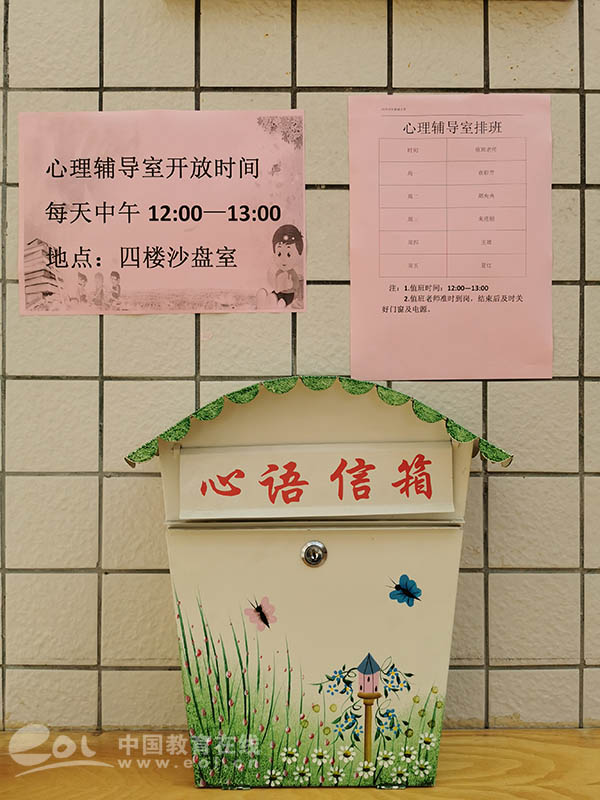 心理辅导室开放时间
每天中午 12:00—13:00
地点：四楼沙盘室
心理辅导室排班
时间 值班老师
周一
周二
周三
周四 王娜
周五 夏红
注：1.值班时间：12:00—13:00
2.值班老师准时到岗，结束后及时关
好门窗及电源。
心语信箱
eol 中国教育在线
www.eol.cn